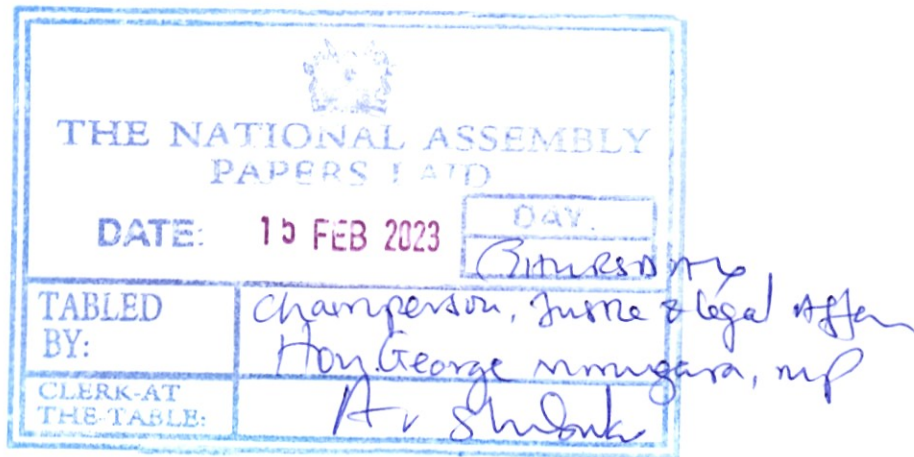 THE NATIONAL ASSEMBLY
PAPERS LAID
DATE: 15 FEB 2023
DAY.
THURSDAY
TABLED BY:
Chairperson, Justice & legal Affairs
Hon. George Murugara, MP
CLERK-AT THE-TABLE: